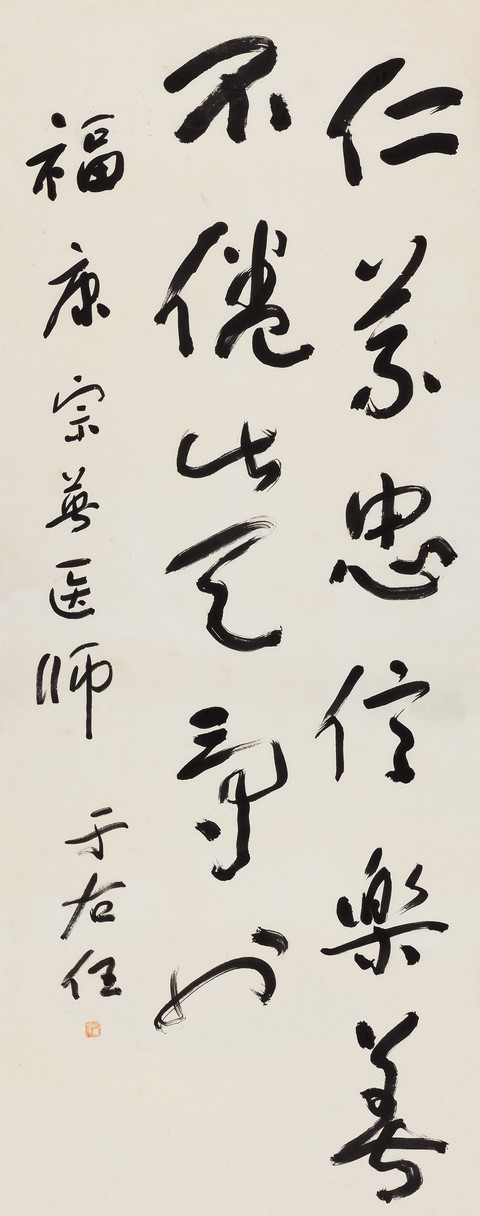 仁義忠信樂善
不倦此天爵也
福康宗英医師
于右任